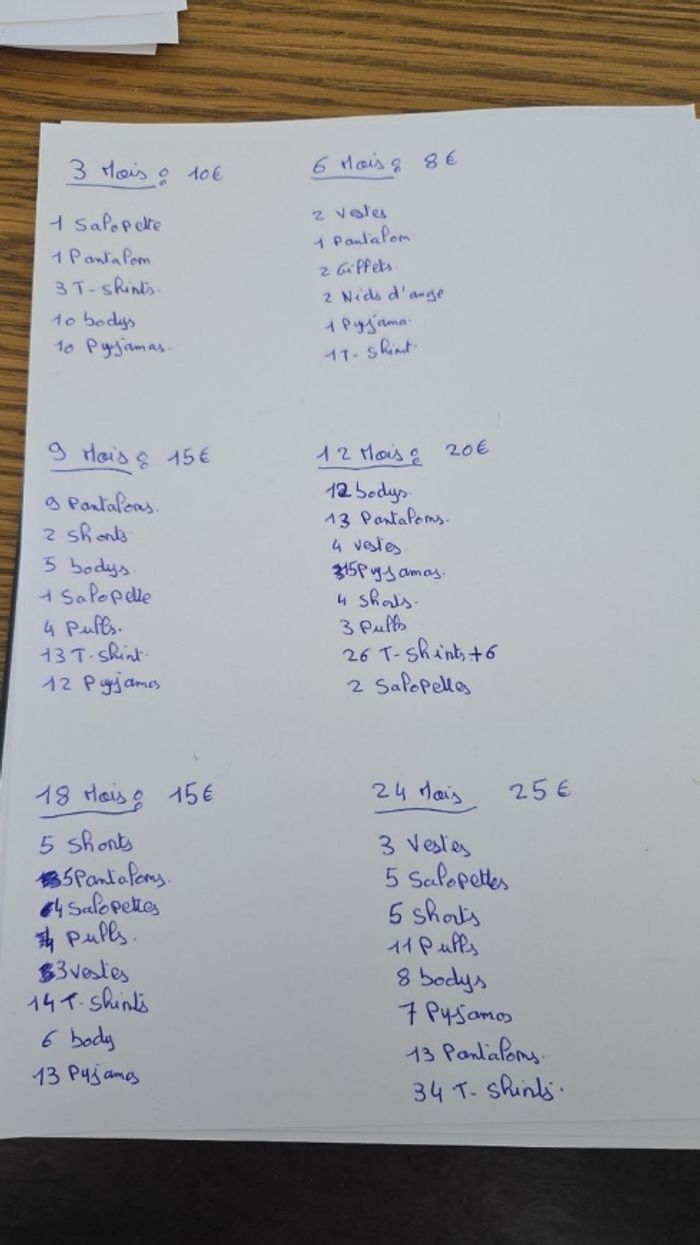 3 Mois : 10€
1 Salopette
1 Pantalon
3 T-shirts.
10 bodys
10 Pyjamas.
6 Mois : 8€
2 Vestes
1 Pantalon
2 Gilets.
2 Nids d'ange
1 Pyjama.
1 T-Shirt.
9 Mois : 15€
9 Pantalons.
2 Shorts
5 bodys.
1 Salopette
4 Pulls.
13 T-Shirt.
12 Pyjamas
12 Mois : 20€
12 bodys.
13 Pantalons.
4 vestes
15 Pyjamas.
4 Shorts.
3 Pulls
26 T-Shirts +6
2 Salopettes
18 Mois : 15€
5 Shorts
5 Pantalons.
4 Salopettes
4 Pulls.
3 vestes
14 T-Shirts
6 body
13 Pyjamas
24 Mois 25€
3 Vestes
5 Salopettes
5 Shorts
11 Pulls
8 bodys
7 Pyjamas
13 Pantalons.
34 T-Shirts.